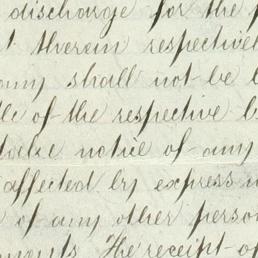 discharge for the
therein respective
any shall not be
of the respective
notice of any
affected by express
of any other person
The receipt of